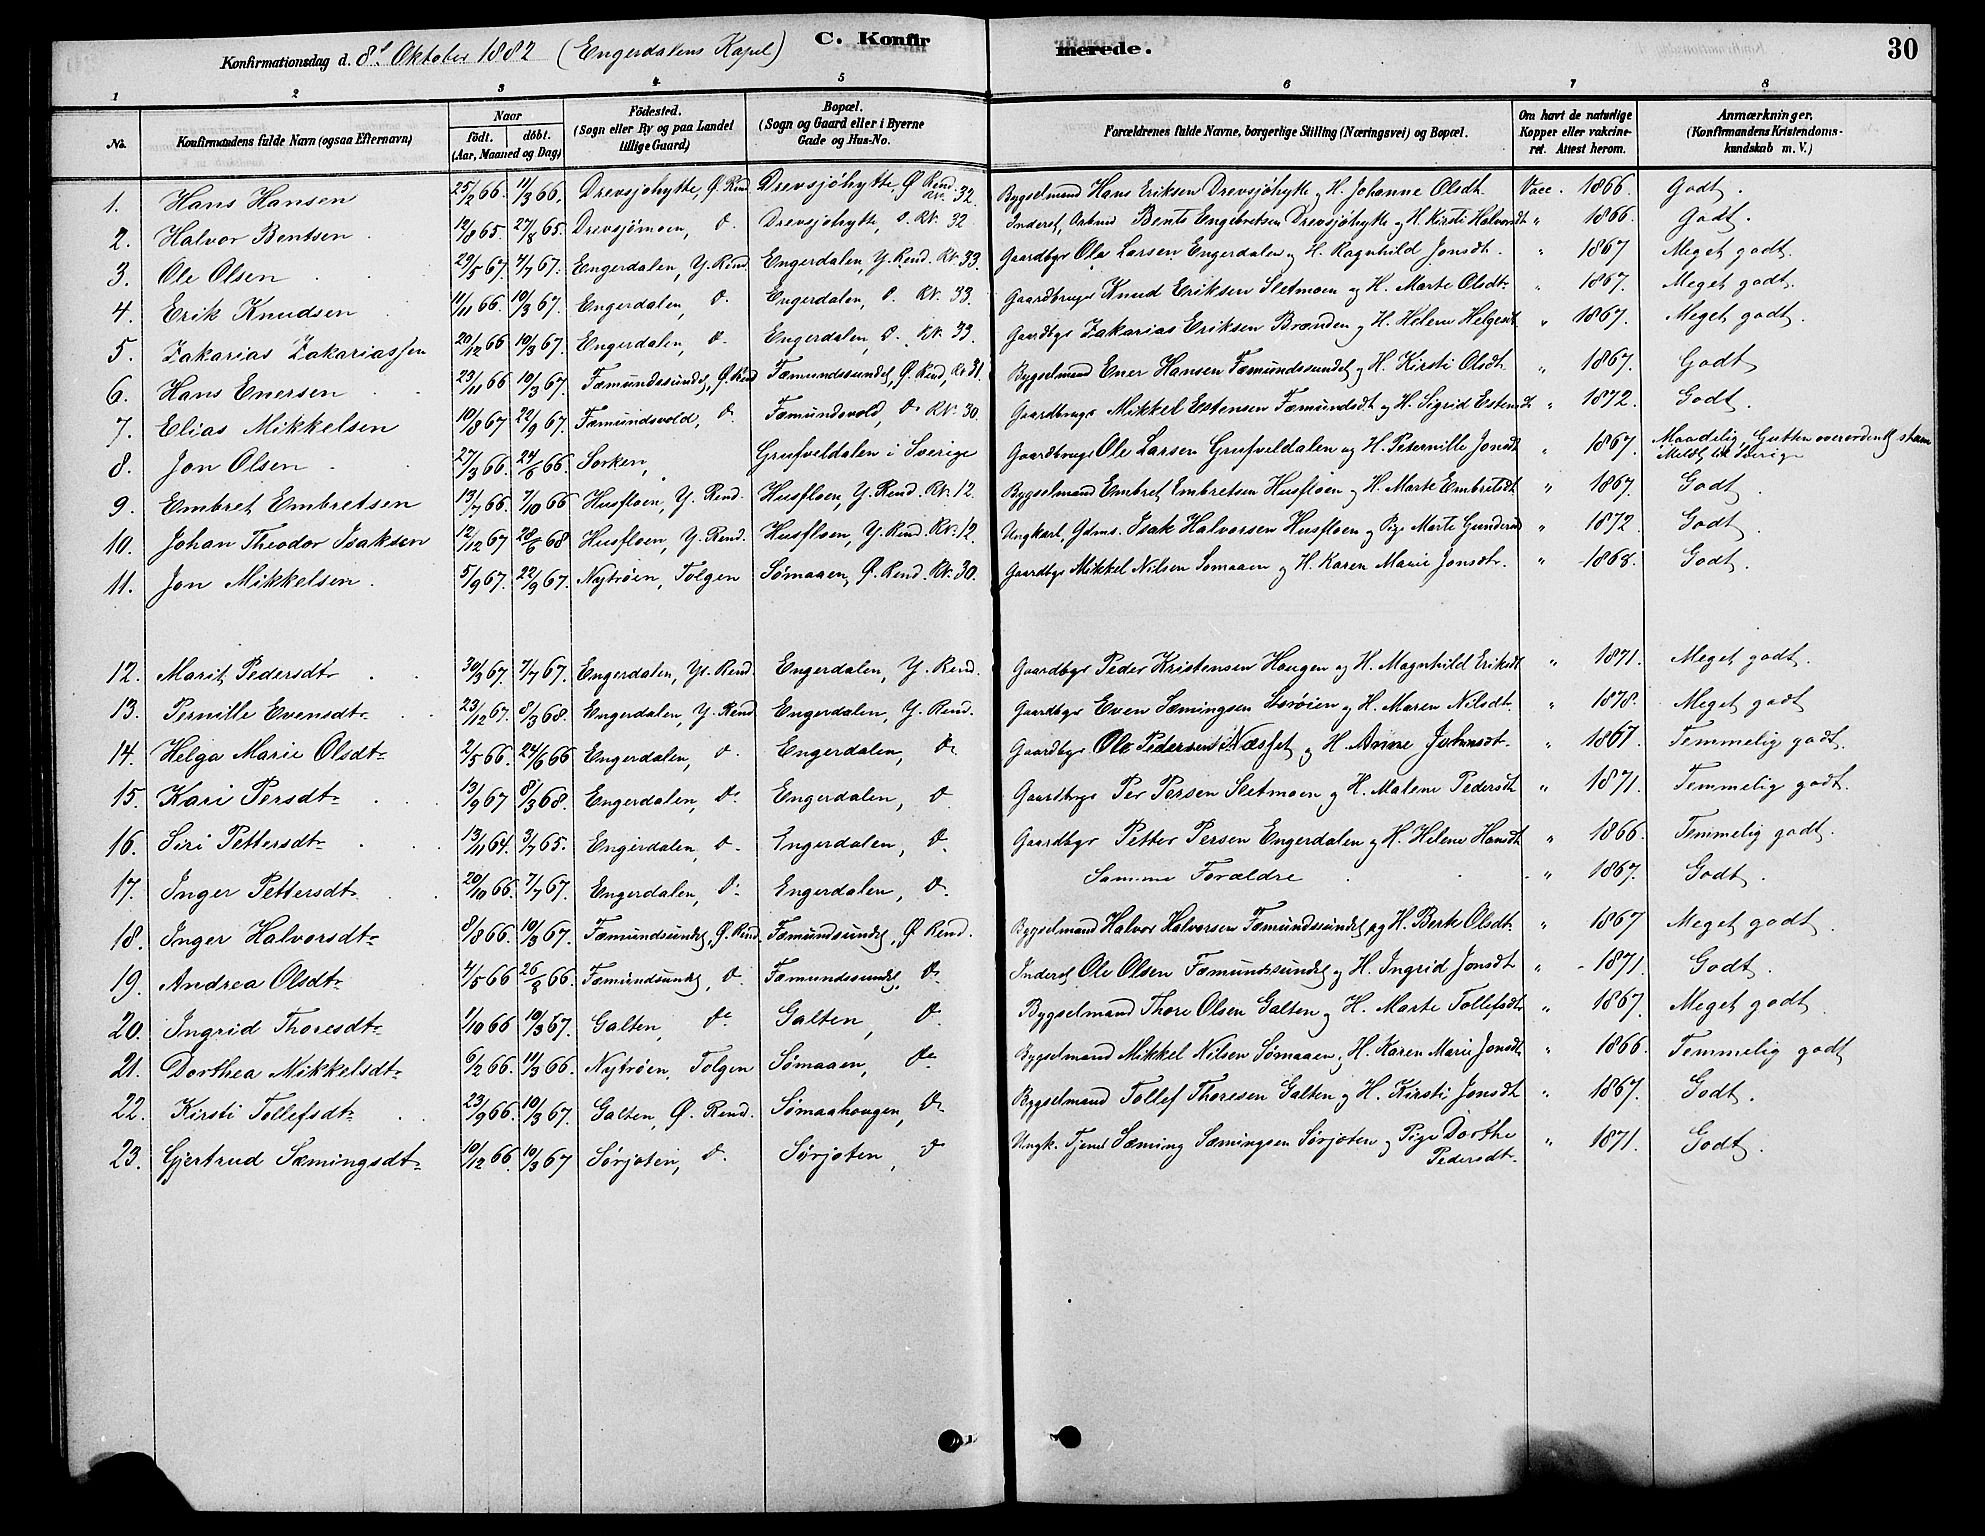 Konfirmationsdag d. 8de Oktober 1882 (Engerdalens Kapel) C. Konfir merede. 30
1 2 3 4 5 6 7 8
No. Konfirmandens fulde Navn (ogsaa Efternavn) Naar födt. döbt. (Aar, Maaned og Dag) Födested. (Sogn eller By og paa Landet tillige Gaard) Bopæl. (Sogn og Gaard eller i Byerne Gade og Hus-No. Forældrenes fulde Navne, borgerlige Stilling (Næringsvei) og Bopæl. Om havt de naturlige Kopper eller vakcineret. Attest herom. Anmærkninger. (Konfirmandens Kristendomskundskab m. V.)
1. Hans Hansen 25/2 66. 11/3 66. Drevsjøhytte, Ø. Rend. Drevsjöhytte, Ø Rend. 32. Bygselmand Hans Eriksen Drevsjöhytte og H. Johanne Olsdt. Vacc. 1866. Godt.
2. Halvor Bentsen 12/8 65. 27/8 65. Drevsjømoen, do. Drevsjohytte, do. Rk. 32 Inderst, Arbmd Bent Engebretsen Drevsjöhytte og H. Kirsti Halvorsdt " 1866. Godt.
3. Ole Olsen 29/5 67. 7/7 67. Engerdalen, Y. Rend Engerdalen, Y. Rend. Rk. 33. Gaardbgr Ole Larsen Engerdalen og H. Ragnhild Jonsdt. " 1867 Meget godt.
4. Erik Knudsen 11/11 66. 10/3 67. Engerdalen, do. Engerdalen, do. Rk. 33. Gaardbruger Knud Eriksen Sletmoen og H. Marte Olsdtr " 1867. Meget godt.
5. Zakarias Zakariassen 20/12 66 10/3 67. Engerdalen, do. Engerdalen, do. Rk. 33. Gaardbgr Zakarias Eriksen Brænden og H. Helene Helgesdt " 1867. Meget godt.
6. Hans Enersen 23/11 66 10/3 67. Fæmundssundet, Ø. Rend Fæmundssundet, Ø. Rend, Rk 31. Bygselmand Ener Hansen Fæmundssundet og H. Kirsti Olsdt " 1867. Godt
7. Elias Mikkelsen 10/8 67 22/9 67. Fæmundsvold, do. Fæmundsvold, do Rk. 30 Gaardbruger Mikkel Estensen Fæmundsdt og H. Sigrid Estensdt " 1872. Godt.
8. Jon Olsen 27/3 66. 24/6 66. Sorken, Grufveldalen i Sverige Gaardbruger Ole Larsen Grufveldalen og H. Peternille Jonsdt " 1867. Maadelig, Gutten overordentlig
Meldt til Sverige
9. Embret Embretsen 13/7 66. 7/10 66 Husfloen, Y. Rend. Husfloen, Y. Rend. Rk. 12. Bygselmand Embret Embretsen Husfloen og H. Marte Embretsdt " 1867. Godt.
10. Johan Theodor Isaksen 12/12 67 28/6 68 Husfloen, Y. Rend. Husfloen, Y. Rend. Rk. 12. Ungkarl, Gdms. Isak Halvorsen Husfloen og Pige Marte Gundersd " 1872. Godt.
11. Jon Mikkelsen 5/9 67. 22/9 67. Nytrøen, Tolgen Sømaaen, Ø. Rend. Rk. 30. Gaardbgr Mikkel Nilsen Sømaaen og H. Karen Marie Jonsdtr. " 1868. Godt.
12. Marit Pedersdtr 30/3 67. 7/7 67. Engerdalen, Y. Rend Engerdalen, Y. Rend. Gaardbgr Peder Kristensen Haugen og H. Magnhild Eriksdt " 1871. Meget godt.
13. Pernille Evensdtr 23/12 67. 8/3 68. Engerdalen, Y. Rend Engerdalen, Y. Rend. Gaardbgr Even Sæmingsen Sorøien og H. Maren Nilsdt. " 1878. Meget godt
14. Helga Marie Olsdtr 2/5 66. 24/6 66 Engerdalen, do. Engerdalen, do. Gaardbgr Ole Pedersen Næsset og H. Anne Johnsdtr. " 1867. Temmelig godt.
15. Kari Persdtr 13/9 67 8/3 68. Engerdalen, do. Engerdalen, do Gaardbrugr Per Persen Sletmoen og H. Malene Pedersdt " 1871. Temmelig godt.
16. Siri Pettersdtr 13/11 64. 3/7 65. Engerdalen, do. Engerdalen, do. Gaardbgr Petter Persen Engerdalen og H. Helene Hansdt " 1866. Temmelig godt.
17. Inger Pettersdtr 20/10 66. 7/7 67. Engerdalen, do. Engerdalen, do. Samme Forældre " 1867. Godt.
18. Inger Halvorsdtr 8/8 66. 10/3 67. Fæmundsundet, Ø. Rend. Fæmundsundet, Ø Rend. Bygselmand Halvor Halvorsen Fæmundssundet og H. Berte Olsdt. " 1867 Meget godt.
19. Andrea Olsdtr 4/5 66 26/8 66. Fæmundsundet, do. Fæmundssundet, do. Inderst Ole Olsen Fæmundssundet og H. Ingrid Jonsdt " 1871. Godt.
20. Ingrid Thoresdtr 1/10 66 10/3 67. Galten, do Galten, do. Bygselmand Thore Olsen Galten og H. Marte Tollefsdt " 1867. Meget godt.
21. Dorthea Mikkelsdtr 6/2 66. 11/3 66. Nytrøen, Tolgen Sømaaen, do Bygselmand Mikkel Nilsen Sømaaen, H. Karen Marie Jonsdt " 1866. Temmelig godt
22. Kirsti Tollefsdtr 23/9 66. 10/3 67. Galten, Ø. Rend. Sømaahougen, do Bygselmand Tollef Thoresen Galten og H. Kirsti Jonsdt " 1867. Godt.
23. Gjertrud Sæmingsdtr 10/12 66. 10/3 67 Sørjoten, do. Sørjoten, do Ungk. Tjener Sæming Sæmingsen Sørjoten og Pige Dorthe " 1871. Godt.
Pedersdtr